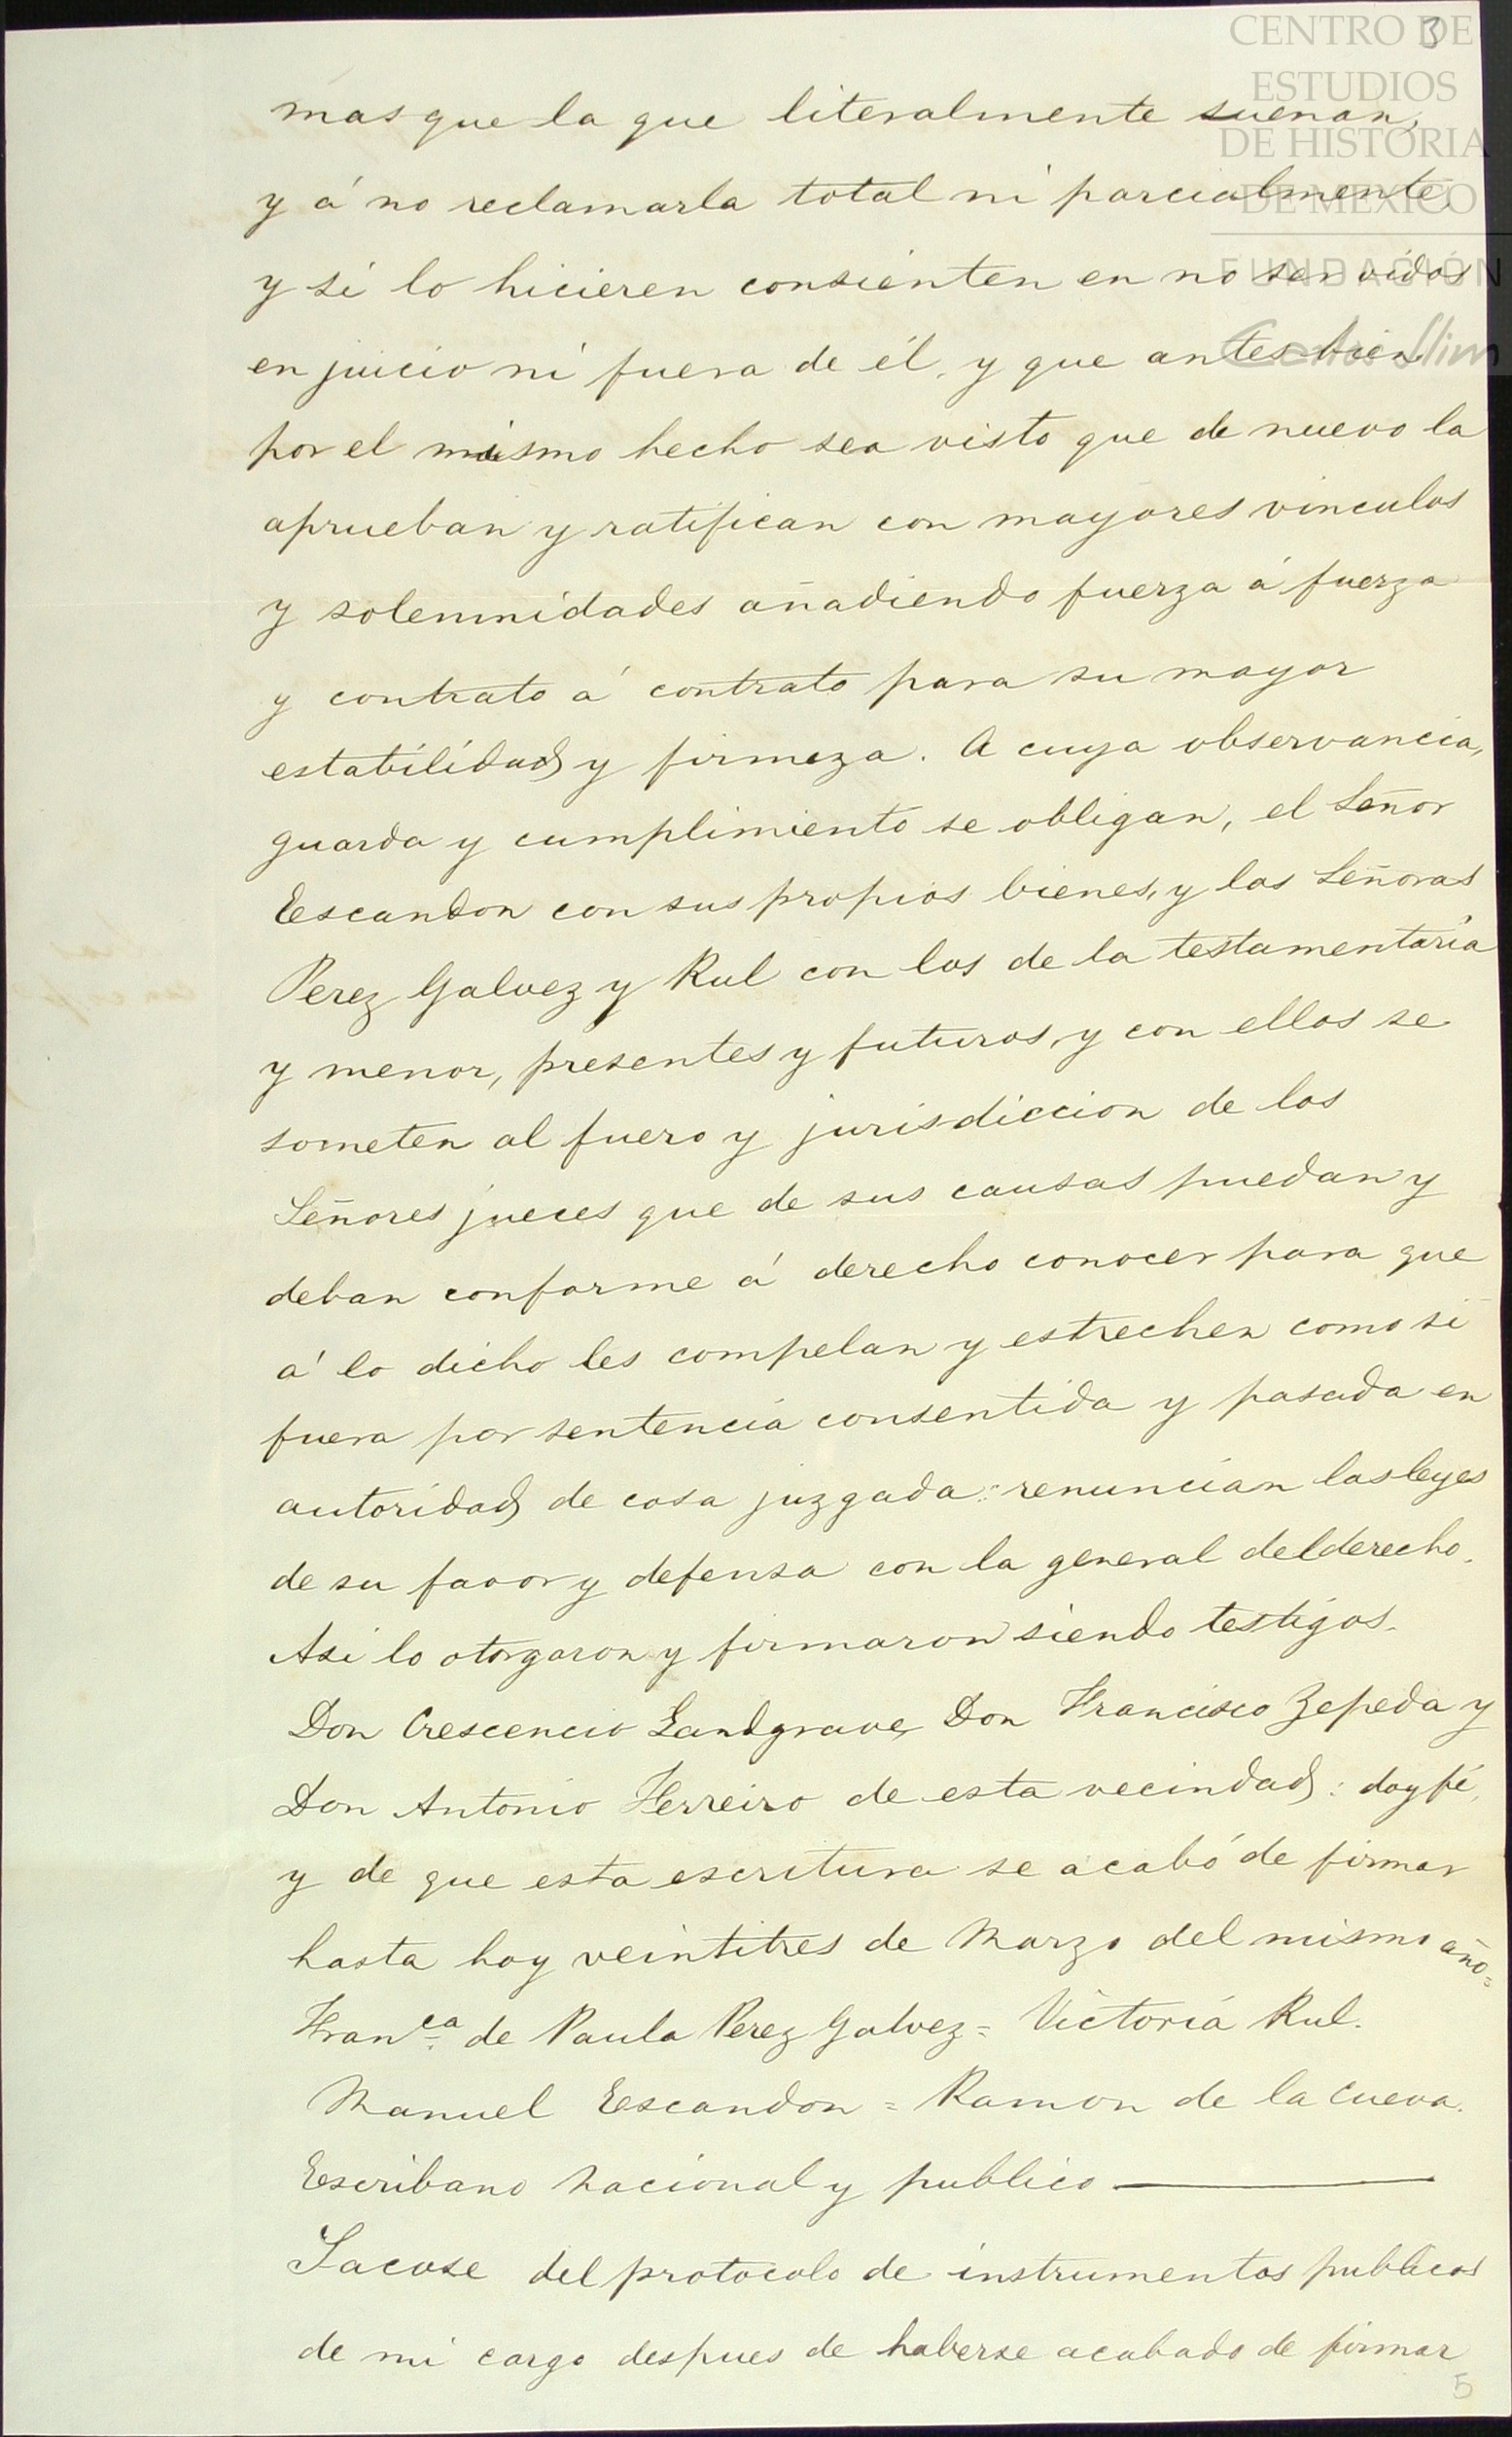 3
CENTRO DE
ESTUDIOS
DE HISTORIA
DE MEXICO
FUNDACIÓN
Carlos Slim
mas que la que literalmente suenan,
y á no reclamarla total ni parcialmente,
y si lo hicieren consienten en no ser oidos
en juicio ni fuera de él, y que antes bien
por el mismo hecho sea visto que de nuevo la
aprueban y ratifican con mayores vinculos
y solemnidades añadiendo fuerza á fuerza
y contrato á contrato para su mayor
estabilidad y firmeza. A cuya observancia,
guarda y cumplimiento se obligan, el Señor
Escandon con sus propios bienes, y las Señoras
Perez Galvez y Rul con los de la testamentaria
y menor, presentes y futuros, y con ellos se
someten al fuero y jurisdiccion de los
Señores jueces que de sus causas puedan y
deban conforme á derecho conocer para que
á lo dicho les compelan y estrechen como si
fuera por sentencia consentida y pasada en
autoridad de cosa juzgada: renuncian las leyes
de su favor y defensa con la general del derecho.
Asi lo otorgaron y firmaron siendo testigos.
Don Crescencio Landgrave, Don Francisco Zepeda y
Don Antonio Ferreiro de esta vecindad: doy fé,
y de que esta escritura se acabó de firmar
hasta hoy veintitres de Marzo del mismo año=
Fran.ca de Paula Perez Galvez = Victoria Rul.
Manuel Escandon = Ramon de la Cueva.
Escribano Nacional y publico —
Sacose del protocolo de instrumentos publicos
de mi cargo despues de haberse acabado de firmar
5